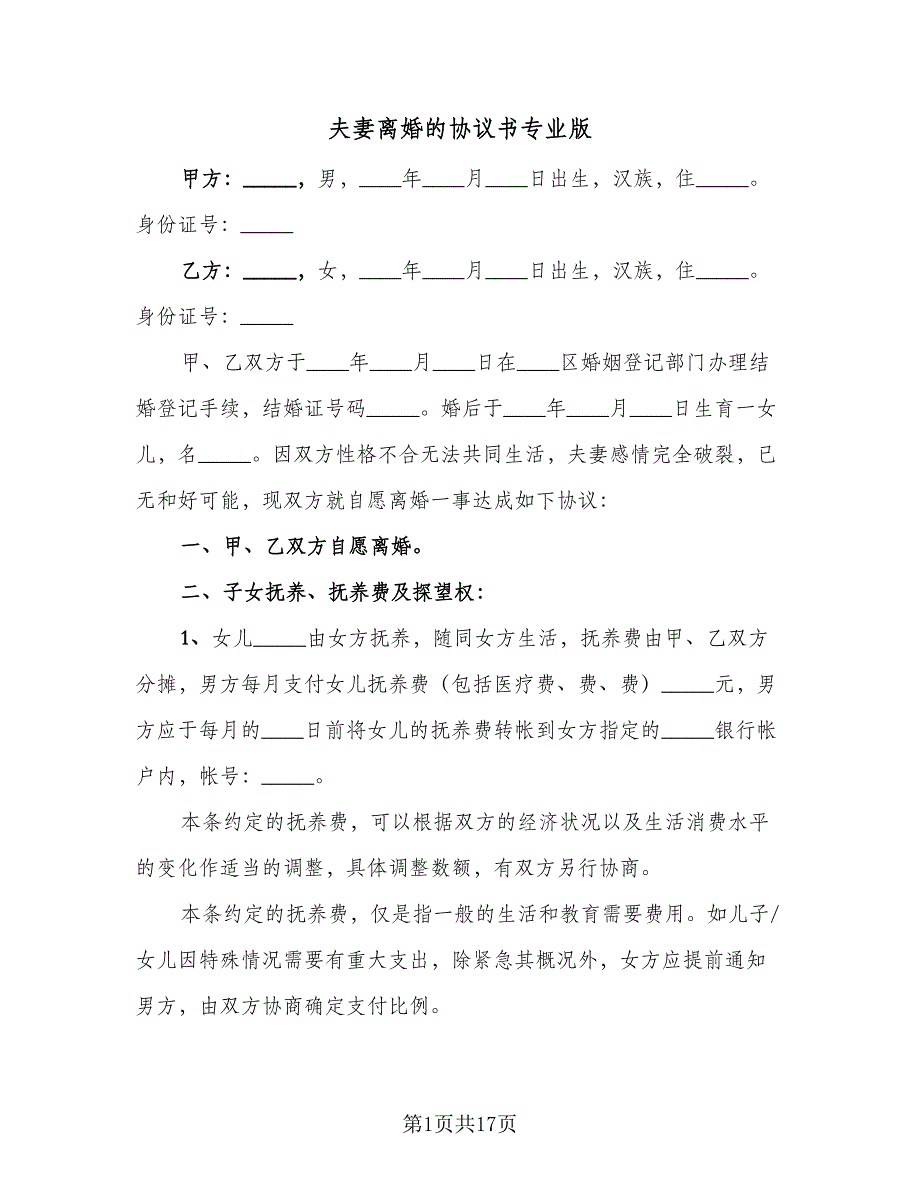 夫妻离婚的协议书专业版
甲方：_____，男，____年____月____日出生，汉族，住_____。
身份证号：_____
乙方：_____，女，____年____月____日出生，汉族，住_____。
身份证号：_____
甲、乙双方于____年____月____日在____区婚姻登记部门办理结
婚登记手续，结婚证号码_____。婚后于____年____月____日生育一女
儿，名_____。因双方性格不合无法共同生活，夫妻感情完全破裂，已
无和好可能，现双方就自愿离婚一事达成如下协议：
一、甲、乙双方自愿离婚。
二、子女抚养、抚养费及探望权：
1、女儿_____由女方抚养，随同女方生活，抚养费由甲、乙双方
分摊，男方每月支付女儿抚养费（包括医疗费、费、费）_____元，男
方应于每月的____日前将女儿的抚养费转帐到女方指定的_____银行帐
户内，帐号：_____。
本条约定的抚养费，可以根据双方的经济状况以及生活消费水平
的变化作适当的调整，具体调整数额，有双方另行协商。
本条约定的抚养费，仅是指一般的生活和教育需要费用。如儿子/
女儿因特殊情况需要有重大支出，除紧急其概况外，女方应提前通知
男方，由双方协商确定支付比例。
第1页共17页